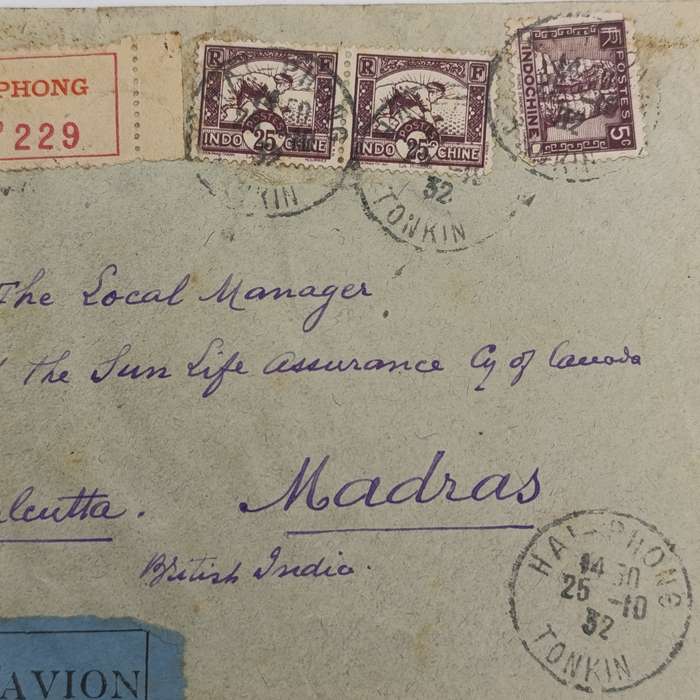 PHONG
229
R F
25c
POSTES
INDO CHINE
R F
25c
POSTES
INDO CHINE
RF
POSTES
INDOCHINE
5c
32
TONKIN
32
TONKIN
The Local Manager
the Sun Life Assurance Cy of Canada
Madras
British India.
HAI-PHONG
14 30
25 -10
32
TONKIN
AVION